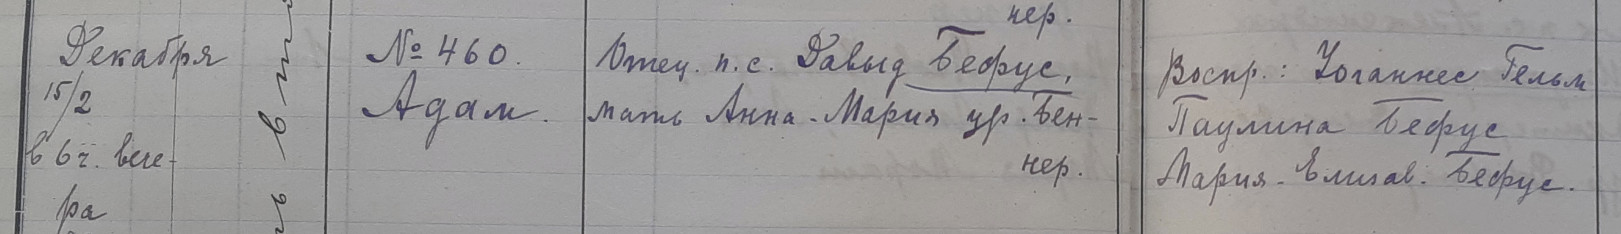 нер.
Декабря
15/2
в 6 ч. вече-
ра
№ 460.
Адам.
Отец. п. с. Давыд Бефус,
мать Анна-Мария ур. Бен-
нер.
Воспр.: Иоганнес Гельм
Паулина Бефус
Мария-Елизав. Бефус.